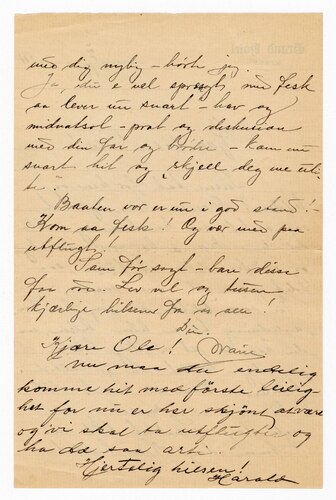 med dig nylig – hørte jeg.
Ja, du er vel sprøsyk, med fesk
saa lever un snart – hav og
midnatsol – prat og diskusion
med din far og brødre – kom nu
snart hit og "skjell deg me ut-
i".
Baaten vor er nu i god stand! –
Kom saa fesk! Og vær med paa
utflugt!
Som før sagt – bare disse
for nu. Lev vel og tusen
kjærlige hilsener fra os alle!
Din
Kjære Ole!
nu maa du endelig
komme hit med første leilig-
het for nu er her skjønt at være
og vi skal ta utflugter og
ha det saa arti.
Hjertelig hilsen!
Harald